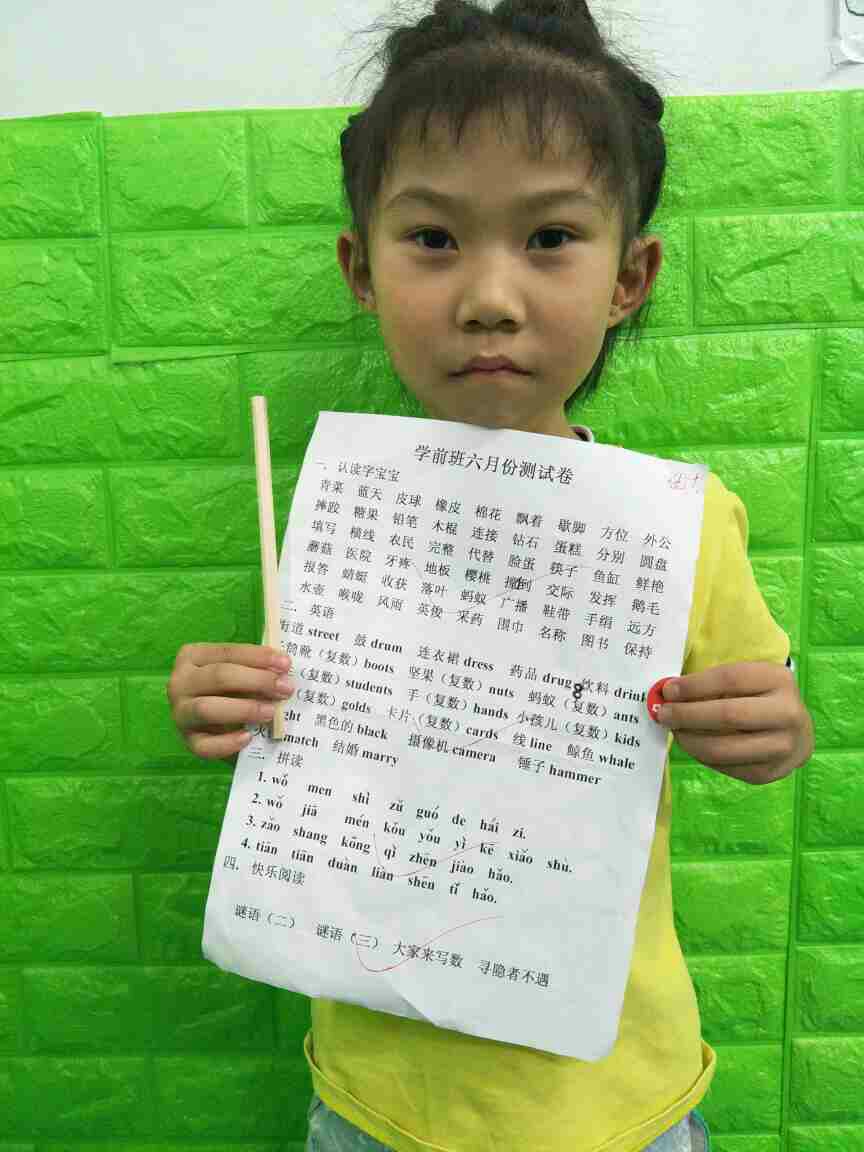 学前班六月份测试卷
一. 认读字宝宝
青菜 蓝天 皮球 橡皮 棉花 飘着 歇脚 方位 外公
摔跤 糖果 铅笔 木棍 连接 钻石 蛋糕 分别 圆盘
填写 横线 农民 完整 代替 脸蛋 筷子 鱼缸 鲜艳
蘑菇 医院 牙疼 地板 樱桃 撞倒 交际 发挥 鹅毛
报答 蜻蜓 收获 落叶 蚂蚁 广播 鞋带 手绢 远方
水壶 喉咙 风雨 英俊 采药 围巾 名称 图书 保持
二. 英语
街道 street 鼓 drum 连衣裙 dress 药品 drug 饮料 drink
筒靴（复数）boots 坚果（复数）nuts 蚂蚁（复数）ants
（复数）students 手（复数）hands 小孩儿（复数）kids
（复数）golds 卡片（复数）cards 线 line 鲸鱼 whale
ght 黑色的 black 摄像机 camera 锤子 hammer
火 match 结婚 marry
三. 拼读
1. wǒ men shì zǔ guó de hái zi.
2. wǒ jiā mén kǒu yǒu yì kē xiǎo shù.
3. zǎo shang kōng qì zhēn jiào hǎo.
4. tiān tiān duàn liàn shēn tǐ hǎo.
四. 快乐阅读
谜语（二） 谜语（三） 大家来写数 寻隐者不遇
8